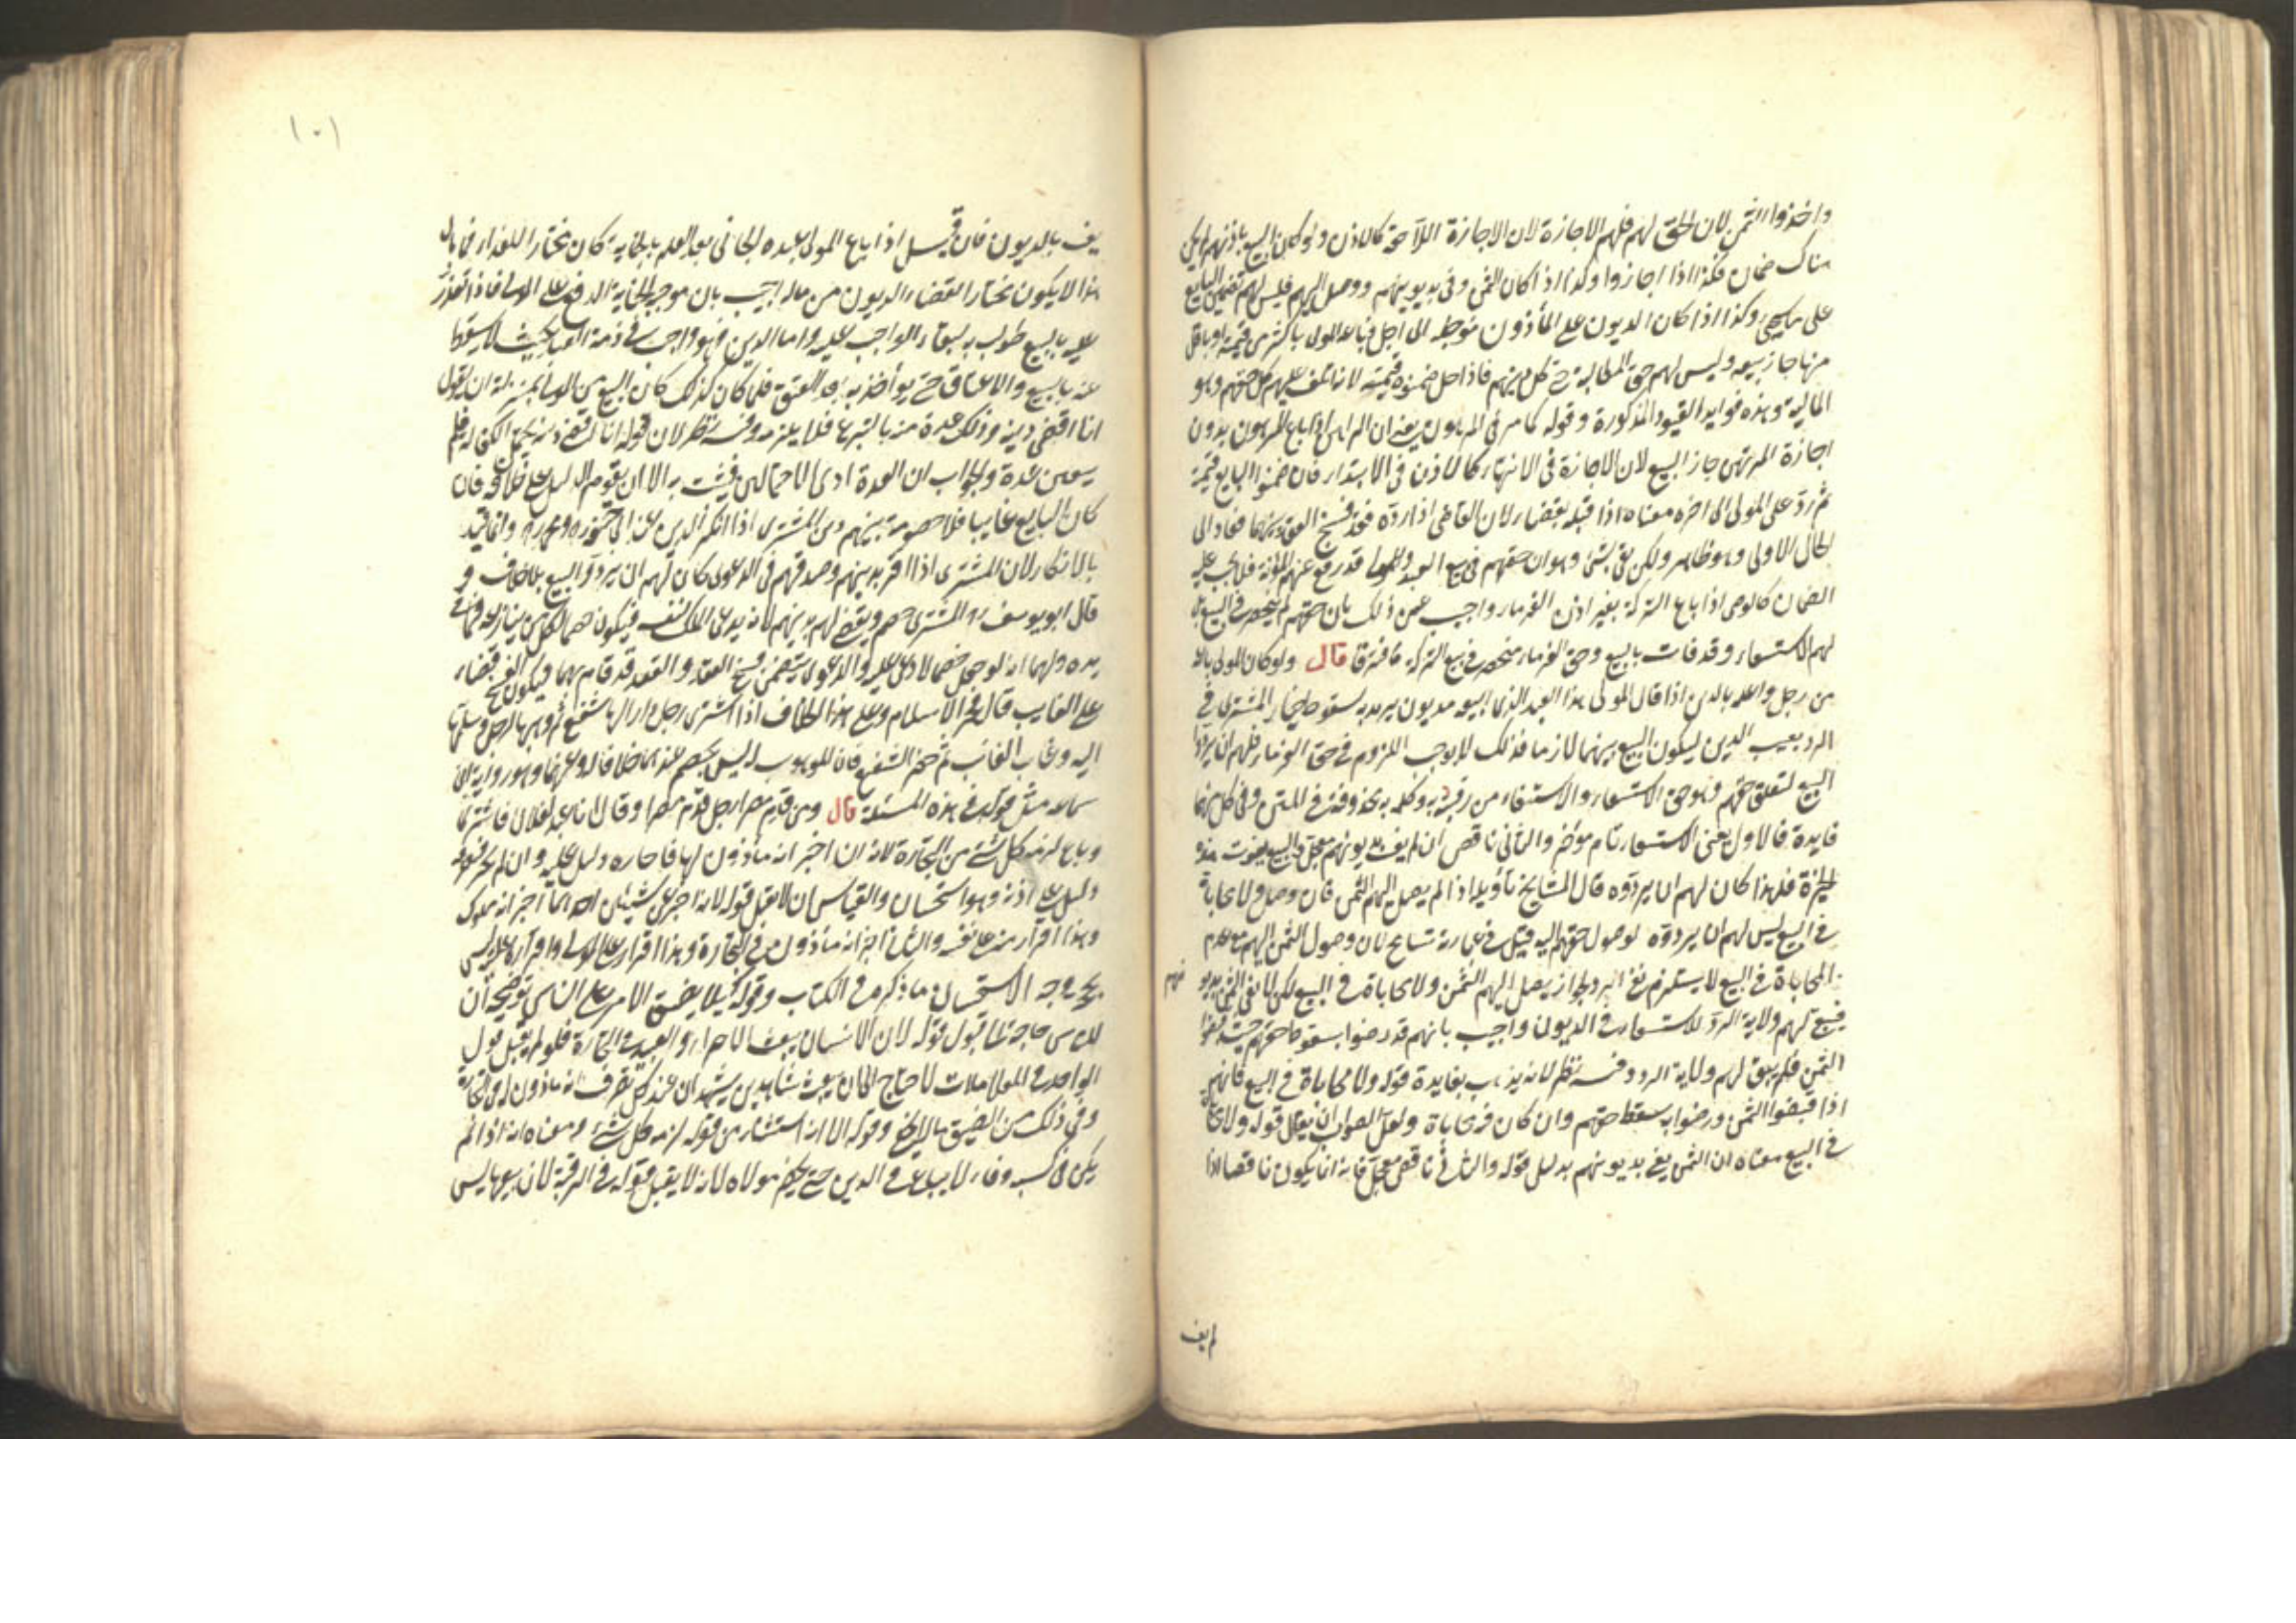 واخذوا الثمن لان الحق لهم فلهم الاجازة لان الاجازة اللاحقة كالاذن ولو كان البيع باذنهم لم يكن
هناك ضمان فكذا اذا اجازوا وكذا اذا كان الثمن وفى بديونهم ووصل اليهم فليس لهم تضمين البايع
على ما يجئ وكذا اذا كان الديون على المأذون مؤجلة الى اجل فباعه المولى باكثر من قيمته او باقل
منها جاز بيعه وليس لهم حق المطالبة حتى يحل دينهم فاذا حل ضمنوه قيمته لانه اتلف عليهم محل حقهم وهو
المالية وهذه فوايد القيود المذكورة وقوله كما مر في المرهون يعنى ان الراهن اذا باع المرهون بدون
اجازة المرتهن جاز البيع لان الاجازة في الانتهاء كالاذن في الابتداء فان ضمنوا البايع قيمته
ثم رد على المولى الى اخره معناه اذا قبله بقضاء لان القاضى اذا رده فقد فسخ العقد بينهما فعاد الى
الحال الاولى وهو ظاهر ولكن بقى شئ وهو ان حقهم في بيع العبد والمولى قد رفع عنهم المؤنة فلم يجب عليه
الضمان كالوصى اذا باع التركة بغير اذن الغرماء واجيب عن ذلك بان حقهم لم ينحصر في البيع بل
لهم الاستسعاء وقد فات بالبيع وحق الغرماء منحصر في بيع التركة فافترقا قال ولو كان المولى باعه
من رجل واعلمه بالدين اذا قال المولى هذا العبد الذى ابيعه مديون يريد به سقوط خيار المشترى في
الرد بعيب الدين ليكون البيع بينهما لازما فذلك لا يوجب اللزوم في حق الغرماء فلهم ان يردوا
البيع لتعلق حقهم وهو حق الاستسعاء والاستيفاء من رقبته وكلمة به محذوفة في المتن وفي كل منهما
فايدة فالاول يعنى الاستسعاء تام مؤخر والثانى ناقص ان لم يف بديونهم معجل وبالبيع يفوت هذه
الخيرة فلهذا كان لهم ان يردوه قال المشايخ تأويله اذا لم يصل اليهم الثمن فان وصل ولا محاباة
في البيع ليس لهم ان يردوه لوصول حقهم اليه قيل في عبارته تسامح لان وصول الثمن اليهم مع عدم
المحاباة في البيع لا يستلزم نفى الرد لجواز ان يصل اليهم الثمن ولا محاباة في البيع لكن لا يفى الثمن بديونهم
فيبقى لهم ولاية الرد للاستسعاء في الديون واجيب بانهم قد رضوا بسقوط حقهم حيث قبضوا
الثمن فلم يبق لهم ولاية الرد وفيه نظر لانه يذهب بفايدة قوله ولا محاباة في البيع فانهم
اذا قبضوا الثمن ورضوا به سقط حقهم وان كان فيه محاباة ولعل الصواب ان يقال قوله ولا محاباة
في البيع معناه ان الثمن يفى بديونهم بدليل قوله والثانى ناقص معجل فانه انما يكون ناقصا اذا
لم يف
١٠١
يف بالديون فان قيل اذا باع المولى عبده الجانى بعد العلم بالجناية كان مختارا للفداء فما بال
هذا لا يكون مختارا لقضاء الديون من ماله اجيب بان موجب الجناية الدفع على المولى فاذا تعذر
عليه بالبيع طولب به لبقاء الواجب عليه واما الدين فهو واجب في ذمة العبد بحيث لا يسقط
عنه بالبيع والاعتاق حتى يؤاخذ به بعد العتق فلما كان كذلك كان البيع من المولى بمنزلة ان يقول
انا اقضى دينه وذلك عدة منه بالتبرع فلا يلزمه وفيه نظر لان قوله انا اقضى دينه يحتمل الكفالة فلم
يتعين عدة والجواب ان العدة ادنى الاحتمالين فيثبت به الا ان يقوم الدليل على خلافه فان
كان البايع غايبا فلا خصومة بينهم وبين المشترى اذا انكر الدين عند ابى حنيفة ومحمد وانما قيد
بالانكار لان المشترى اذا اقر بدينهم وصدقهم في الدعوى كان لهم ان يردوا البيع بلا خلاف و
قال ابو يوسف المشترى خصم ويقضى لهم بدينهم لانه يدعى الملك لنفسه فيكون خصما لكل من ينازعه فيما في
يده ولهما انه لو جعل خصما لادعى عليه والدعوى يتضمن فسخ العقد والعقد قد قام بهما فيكون الفسخ قضاء
على الغايب قال فخر الاسلام وعلى هذا الخلاف اذا اشترى رجل دارا لها شفيع ثم وهبها لرجل وسلمها
اليه وغاب الغائب ثم حضر الشفيع فان الموهوب له ليس بخصم عندهما خلافا له وعنهما وهو رواية ابن
سماعة مثل قوله في هذه المسئلة قال ومن قدم مصرا رجل قدم مصرا وقال انا عبد لفلان فاشترى
وباع لزمه كل شئ من التجارة لانه ان اخبر انه مأذون لها فاخباره دليل عليه وان لم يخبر فتصرفه
دليل على اذنه وهو استحسان والقياس ان لا يقبل قوله لانه اخبر عن شيئين احدهما اخبر انه مملوك
وهذا اقرار منه على نفسه والثانى اخبر انه مأذون في التجارة وهذا اقرار على المولى واقراره عليه ليس
بحجة وجه الاستحسان ما ذكره في الكتاب وقوله كيلا يضيق الامر على الناس توضيحه ان
للناس حاجة الى قبول قوله لان الانسان يبعث الاحرار والعبيد في التجارة فلو لم يقبل قول
الواحد في المعاملات لاحتاج الى ان يبعث شاهدين يشهدان عند كل تصرف انه مأذون له في التجارة
وفي ذلك من الضيق ما لا يخفى وقوله الا انه استثناء من قوله لزمه كل شئ ومعناه انه اذا لم
يكن في كسبه وفاء لا يباع في الدين حتى يحضر مولاه لانه لا يقبل قوله في الرقبة لان بيعها ليس